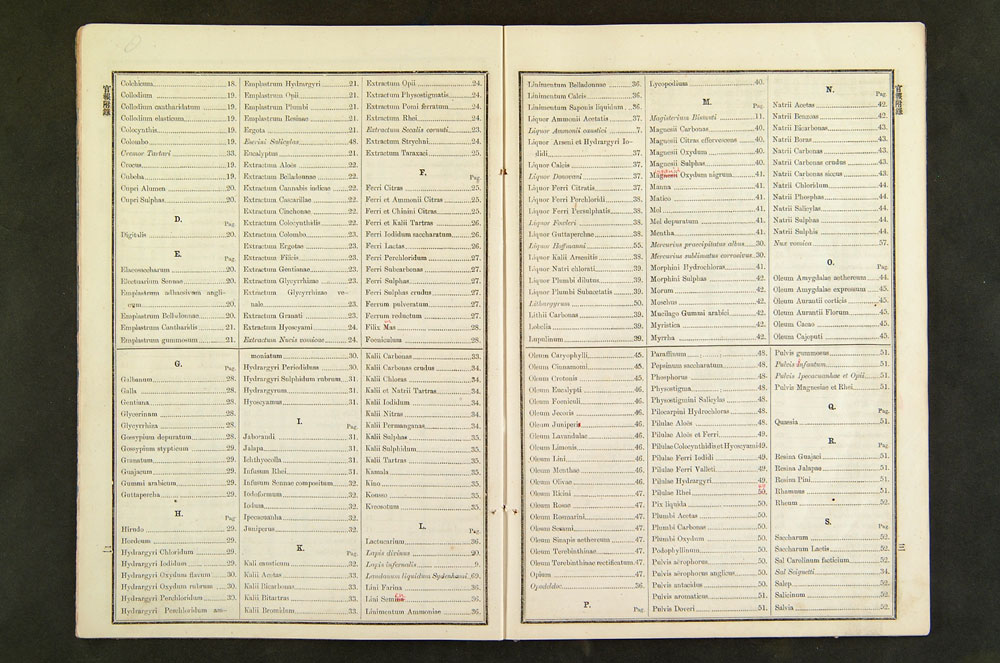 官報附錄
Colchicum 18.
Collodium 19.
Collodium cantharidatum 19.
Collodium elasticum 19.
Colocynthis 19.
Colombo 19.
Cremor Tartari 33.
Crocus 19.
Cubeba 19.
Cupri Alumen 20.
Cupri Sulphas 20.
D.
Pag
Digitalis 20.
E.
Pag.
Elaeosaccharum 20.
Electuarium Sennae 20.
Emplastrum adhaesivum angli-
cum 20.
Emplastrum Belladonnae 20.
Emplastrum Cantharidis 21.
Emplastrum gummosum 21.
Emplastrum Hydrargyri 21.
Emplastrum Opii 21.
Emplastrum Plumbi 21.
Emplastrum Resinae 21.
Ergota 21.
Eserini Salicylas 48.
Eucalyptus 21.
Extractum Aloës 22.
Extractum Belladonnae 22.
Extractum Cannabis indicae 22.
Extractum Cascarillae 22.
Extractum Cinchonae 22.
Extractum Colocynthidis 22.
Extractum Colombo 23.
Extractum Ergotae 23.
Extractum Filicis 23.
Extractum Gentianae 23.
Extractum Glycyrrhizae 23.
Extractum Glycyrrhizae ve-
nale 23.
Extractum Granati 23.
Extractum Hyoscyami 24.
Extractum Nucis vomicae 24.
Extractum Opii 24.
Extractum Physostigmatis 24.
Extractum Pomi ferratum 24.
Extractum Rhei 24.
Extractum Secalis cornuti 23.
Extractum Strychni 24.
Extractum Taraxaci 25.
F.
Pag.
Ferri Citras 25.
Ferri et Ammonii Citras 25.
Ferri et Chinini Citras 25.
Ferri et Kalii Tartras 26.
Ferri Iodidum saccharatum 26.
Ferri Lactas 26.
Ferri Perchloridum 27.
Ferri Subcarbonas 27.
Ferri Sulphas 27.
Ferri Sulphas crudus 27.
Ferrum pulveratum 27.
Ferrum reductum 27.
Filix Mas 28.
Foeniculum 28.
G.
Pag.
Galbanum 28.
Galla 28.
Gentiana 28.
Glycerinum 28.
Glycyrrhiza 28.
Gossypium depuratum 28.
Gossypium stypticum 29.
Granatum 29.
Guajacum 29.
Gummi arabicum 29.
Guttapercha 29.
H.
Pag.
Hirudo 29.
Hordeum 29.
Hydrargyri Chloridum 29.
Hydrargyri Iodidum 29.
Hydrargyri Oxydum flavum 30.
Hydrargyri Oxydum rubrum 30.
Hydrargyri Perchloridum 30.
Hydrargyri Perchloridum am-
moniatum 30.
Hydrargyri Periodidum 30.
Hydrargyri Sulphidum rubrum 31.
Hydrargyrum 31.
Hyoscyamus 31.
I.
Pag.
Jaborandi 31.
Jalapa 31.
Ichthyocolla 31.
Infusum Rhei 31.
Infusum Sennae compositum 32.
Iodoformum 32.
Iodum 32.
Ipecacuanha 32.
Juniperus 32.
K.
Pag.
Kali causticum 32.
Kalii Acetas 33.
Kalii Bicarbonas 33.
Kalii Bitartras 33.
Kalii Bromidum 33.
Kalii Carbonas 33.
Kalii Carbonas crudus 34.
Kalii Chloras 34.
Kalii et Natrii Tartras 34.
Kalii Iodidum 34.
Kalii Nitras 34.
Kalii Permanganas 34.
Kalii Sulphas 35.
Kalii Sulphidum 35.
Kalii Tartras 35.
Kamala 35.
Kino 35.
Kousso 35.
Kreosotum 35.
L.
Pag.
Lactucarium 36.
Lapis divinus 20.
Lapis infernalis 9.
Laudanum liquidum Sydenhami 69.
Lini Farina 36.
Lini Semina 36.
Linimentum Ammoniae 36.
二
Linimentum Belladonnae 36.
Linimentum Calcis 36.
Linimentum Saponis liquidum 36.
Liquor Ammonii Acetatis 37.
Liquor Ammonii caustici 7.
Liquor Arseni et Hydrargyri Io-
didi 37.
Liquor Calcis 37.
Liquor Donovani 37.
Liquor Ferri Citratis 37.
Liquor Ferri Perchloridi 38.
Liquor Ferri Persulphatis 38.
Liquor Fowleri 38.
Liquor Guttaperchae 38.
Liquor Hoffmanni 55.
Liquor Kalii Arsenitis 38.
Liquor Natri chlorati 39.
Liquor Plumbi dilutus 39.
Liquor Plumbi Subacetatis 39.
Lithargyrum 50.
Lithii Carbonas 39.
Lobelia 39.
Lupulinum 39.
Lycopodium 40.
M.
Pag.
Magisterium Bismuti 11.
Magnesii Carbonas 40.
Magnesii Citras effervescens 40.
Magnesii Oxydum 40.
Magnesii Sulphas 40.
Oxydum nigrum 41.
Manna 41.
Matico 41.
Mel 41.
Mel depuratum 41.
Mentha 41.
Mercurius praecipitatus albus 30.
Mercurius sublimatus corrosivus 30.
Morphini Hydrochloras 41.
Morphini Sulphas 42.
Morum 42.
Moschus 42.
Mucilago Gummi arabici 42.
Myristica 42.
Myrrha 42.
N.
Pag.
Natrii Acetas 42.
Natrii Benzoas 42.
Natrii Bicarbonas 43.
Natrii Boras 43.
Natrii Carbonas 43.
Natrii Carbonas crudus 43.
Natrii Carbonas siccus 43.
Natrii Chloridum 44.
Natrii Phosphas 44.
Natrii Salicylas 44.
Natrii Sulphas 44.
Natrii Sulphis 44.
Nux vomica 57.
O.
Pag.
Oleum Amygdalae aethereum 44.
Oleum Amygdalae expressum 45.
Oleum Aurantii corticis 45.
Oleum Aurantii Florum 45.
Oleum Cacao 45.
Oleum Cajeputi 45.
Oleum Caryophylli 45.
Oleum Cinnamomi 45.
Oleum Crotonis 45.
Oleum Eucalypti 46.
Oleum Foeniculi 46.
Oleum Jecoris 46.
Oleum Juniperi 46.
Oleum Lavandulae 46.
Oleum Limonis 46.
Oleum Lini 46.
Oleum Menthae 46.
Oleum Olivae 46.
Oleum Ricini 47.
Oleum Rosae 47.
Oleum Rosmarini 47.
Oleum Sesami 47.
Oleum Sinapis aethereum 47.
Oleum Terebinthinae 47.
Oleum Terebinthinae rectificatum 47.
Opium 47.
Opodeldoc 36.
P.
Pag.
Paraffinum 48.
Pepsinum saccharatum 48.
Phosphorus 48.
Physostigma 48.
Physostigmini Salicylas 48.
Pilocarpini Hydrochloras 48.
Pilulae Aloës 48.
Pilulae Aloës et Ferri 49.
Pilulae Colocynthidis et Hyoscyami 49.
Pilulae Ferri Iodidi 49.
Pilulae Ferri Valleti 49.
Pilulae Hydrargyri 49.
Pilulae Rhei 50.
Pix liquida 50.
Plumbi Acetas 50.
Plumbi Carbonas 50.
Plumbi Oxydum 50.
Podophyllinum 50.
Pulvis aërophorus 50.
Pulvis aërophorus anglicus 50.
Pulvis antacidus 50.
Pulvis aromaticus 51.
Pulvis Doveri 51.
Pulvis gummosus 51.
Pulvis Infantum 51.
Pulvis Ipecacuanhae et Opii 51.
Pulvis Magnesiae et Rhei 51.
Q.
Pag.
Quassia 51.
R.
Pag.
Resina Guajaci 51.
Resina Jalapae 51.
Resina Pini 51.
Rhamnus 51.
Rheum 52.
S.
Pag.
Saccharum 52.
Saccharum Lactis 52.
Sal Carolinum facticium 52.
Sal Seignetti 34.
Salep 52.
Salicinum 52.
Salvia 52.
官報附錄
三